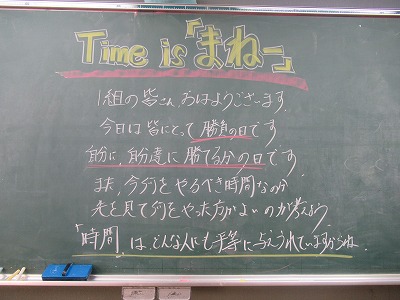 Time is「まねー」
1組の皆さん、おはようございます。
今日は皆にとって勝負の日です
自分に、自分達に勝てる分の日です
また、今何をやるべき時間なのか
先を見て何をやった方がよいのか考えよう
「時間」は、どんな人にも平等に与えられていますからね